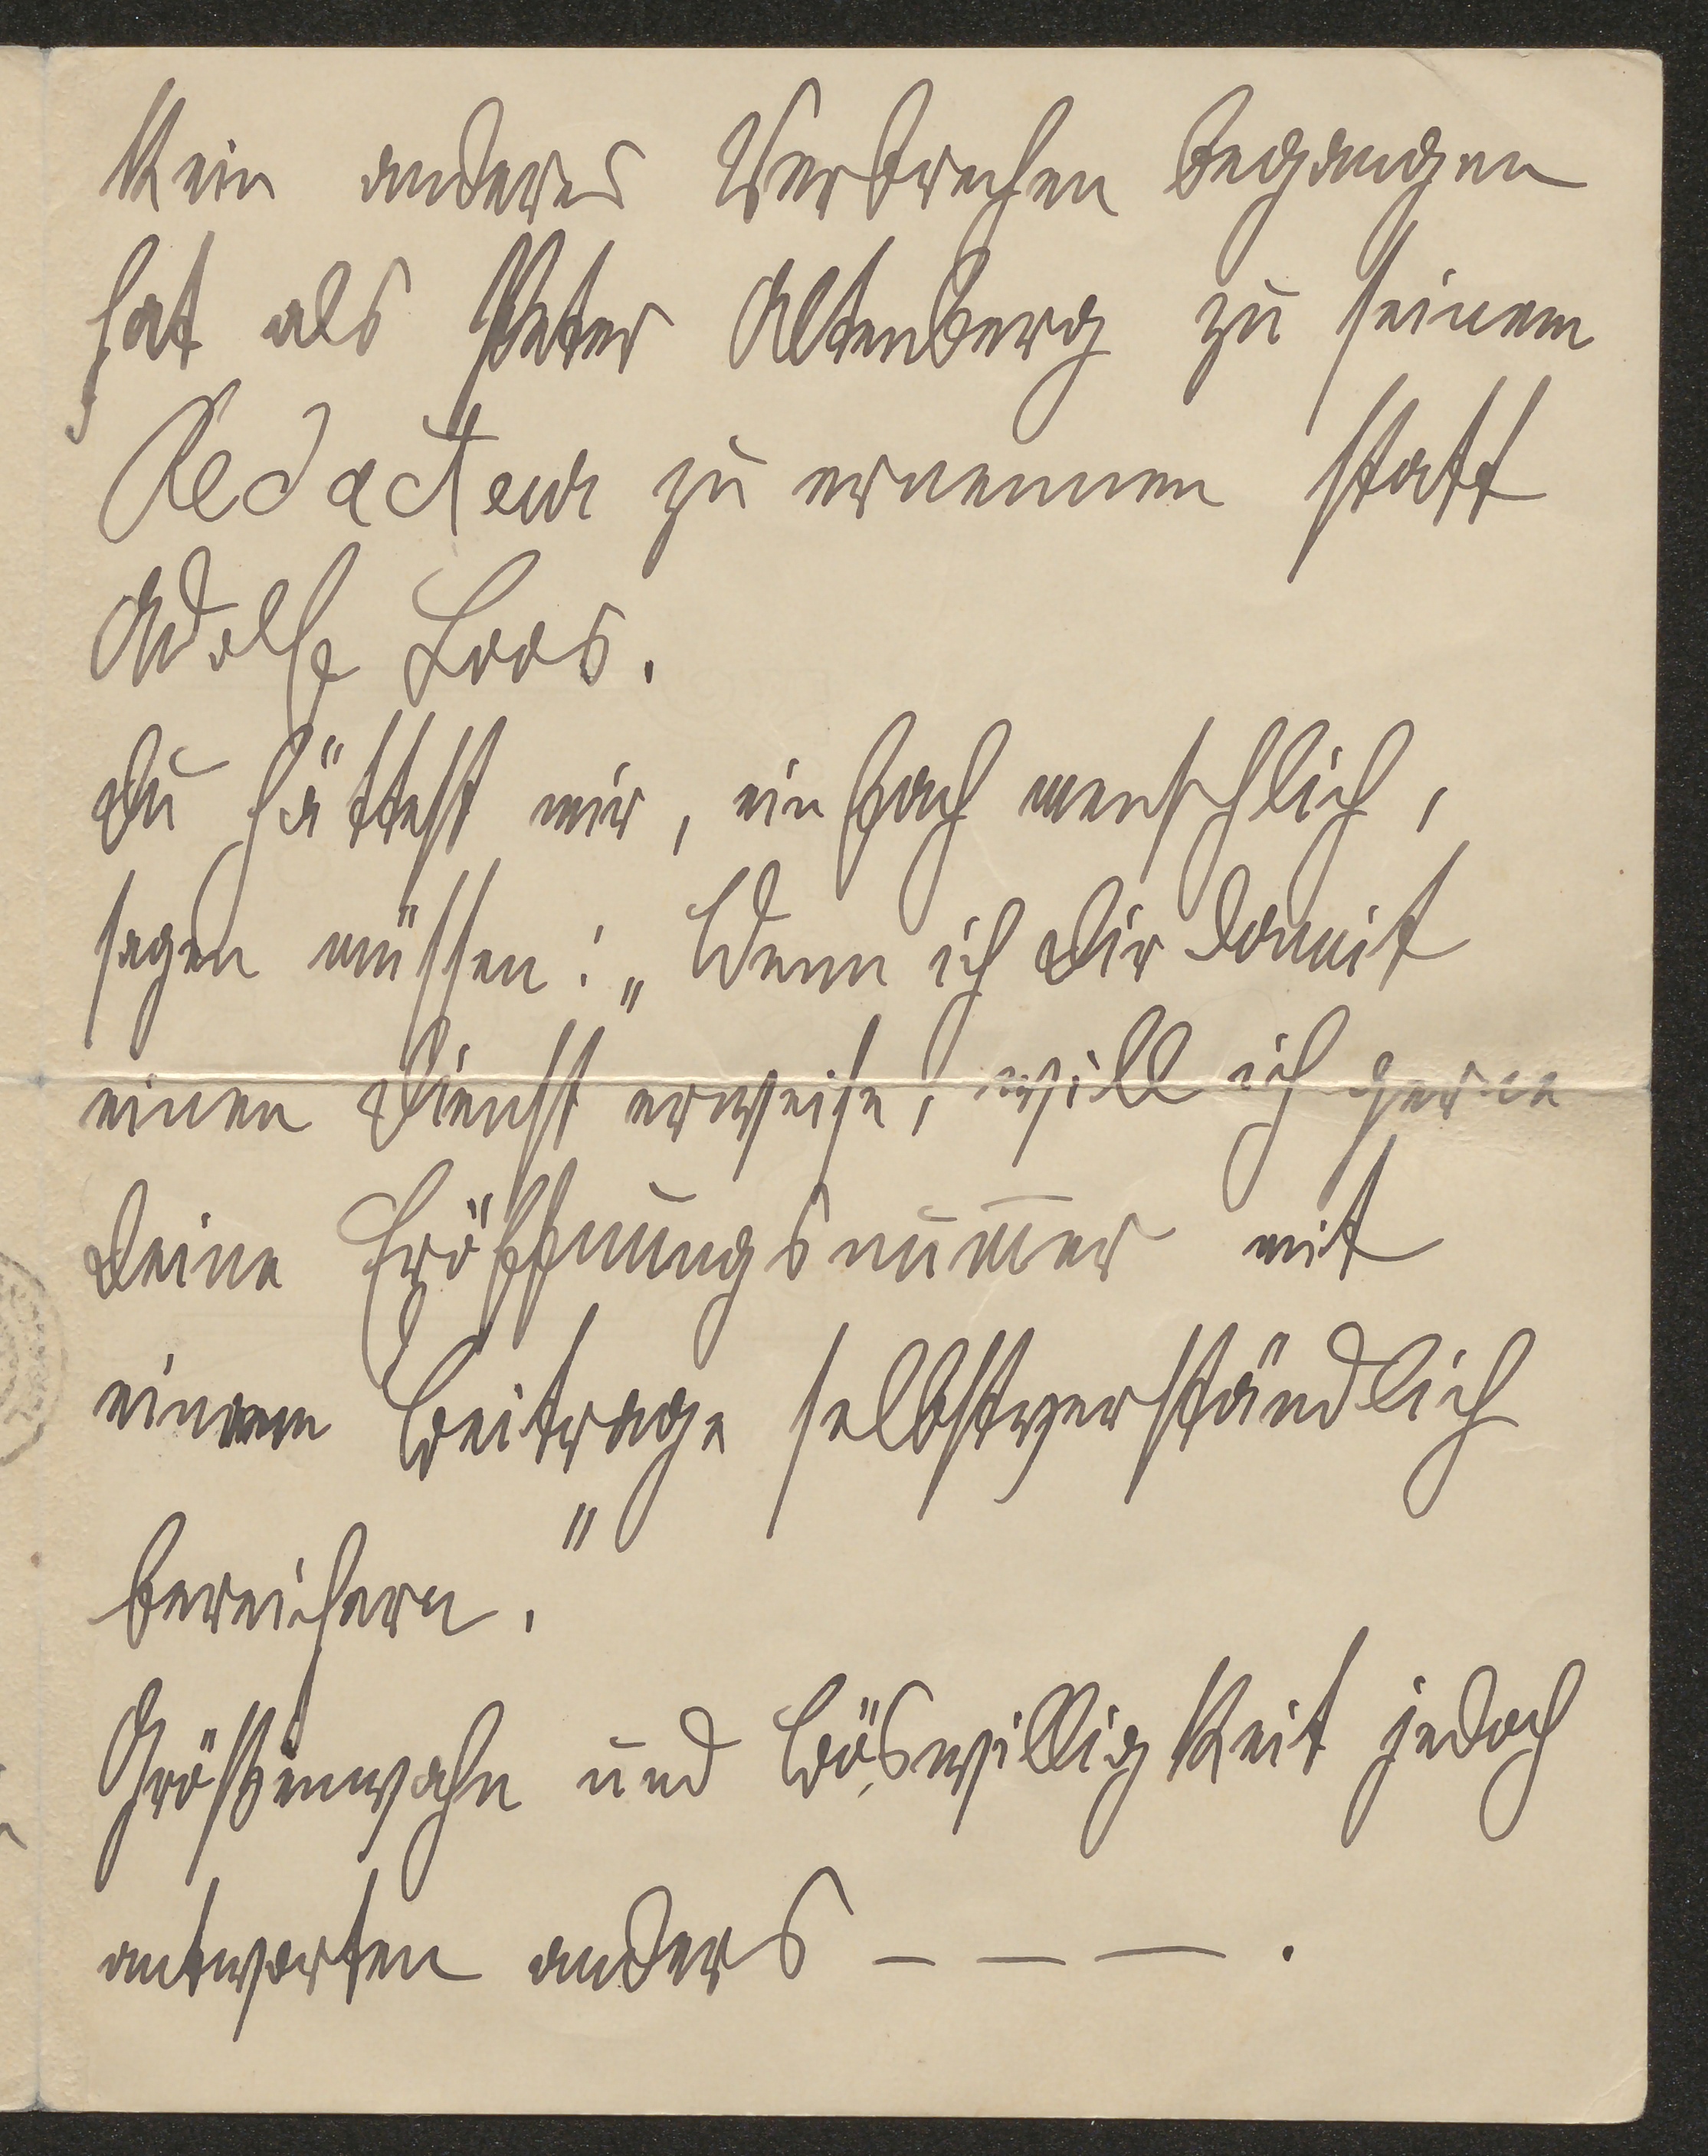 kein anderes Verbrechen begangen
hat als Peter Altenberg zu seinem
Redacteur zu ernennen statt
Adolf Loos.
Du hättest mir, einfach menschlich,
sagen müssen: „Wenn ich Dir damit
einen Dienst erweise, will ich gerne
Deine Eröffnungsnum̅er mit
einem Beitrage selbstverständlich
bereichern."
Größenwahn und Böswilligkeit jedoch
antworten anders — — — .